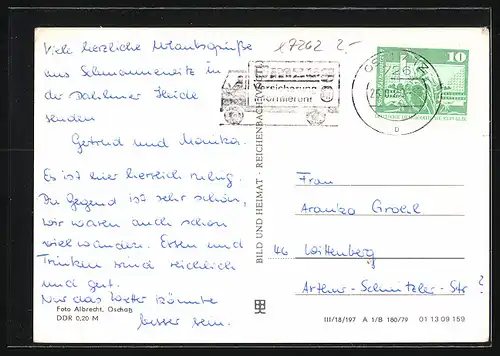 Viele herzliche Urlaubsgrüße
aus Schmannewitz in
der Dahlener Heide
senden
Gertrud und Monika.
Es ist hier herrlich ruhig.
Die Gegend ist sehr schön,
wir waren auch schon
viel wandern. Essen und
Trinken sind reichlich
und gut.
Nur das Wetter könnte
besser sein.
Foto Albrecht, Oschatz
DDR 0,20 M
BILD UND HEIMAT · REICHENBACH (VOGTL)
17262 2,-
Versicherung
informieren!
10
DEUTSCHE DEMOKRATISCHE REPUBLIK
Frau
Grohl
46 Wittenberg
Artur-Schnitzler-Str ?
III/18/197 A 1/B 180/79 01 13 09 159